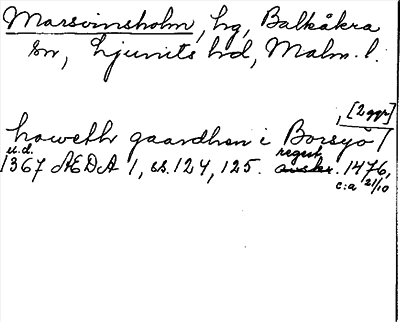 Marsvinsholm, hg, Balkåkra
sn, Ljunits hd, Malm. l.
, [2 ggr]
howeth gaardhen i Borsyö /
u.d. regest
1367 ÆDA 1, ss. 124, 125. avskr. 1476,
c:a 21/10